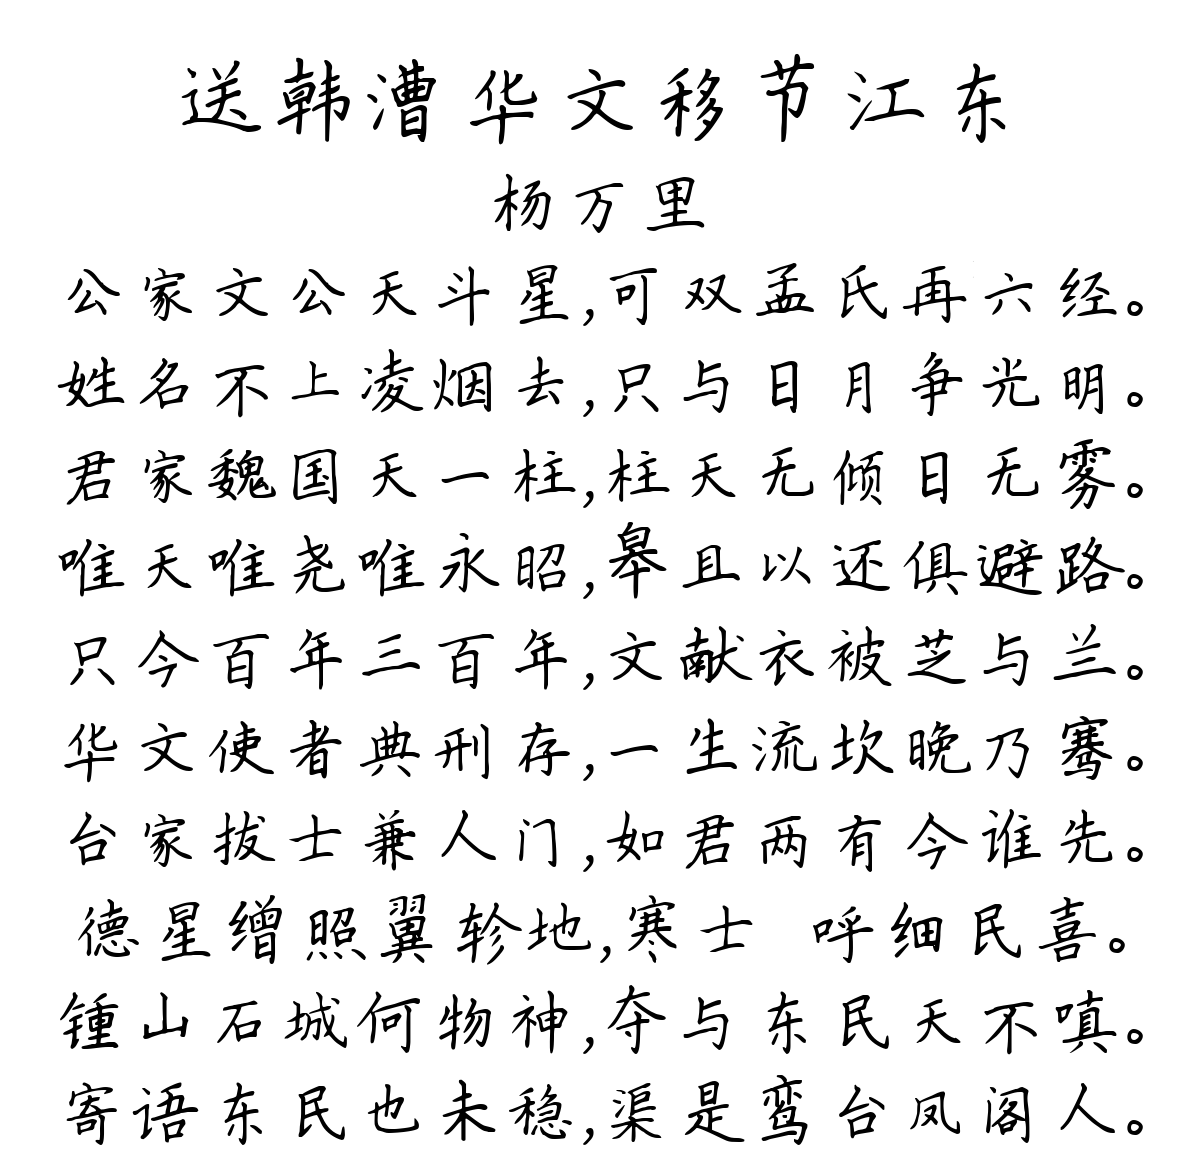 送韩漕华文移节江东
杨万里
公家文公天斗星,可双孟氏再六经。
姓名不上凌烟去,只与日月争光明。
君家魏国天一柱,柱天无倾日无雾。
唯天唯尧唯永昭,皋且以还俱避路。
只今百年三百年,文献衣被芝与兰。
华文使者典刑存,一生流坎晚乃骞。
台家拔士兼人门,如君两有今谁先。
德星缯照翼轸地,寒士 呼细民喜。
锺山石城何物神,夺与东民天不嗔。
寄语东民也未稳,渠是鸾台凤阁人。